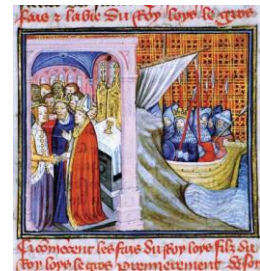 fais ⁊ la vie du Roy loys le gros
Ci comencent les fais du Roy loys filz du
Roy loys le gros premierement